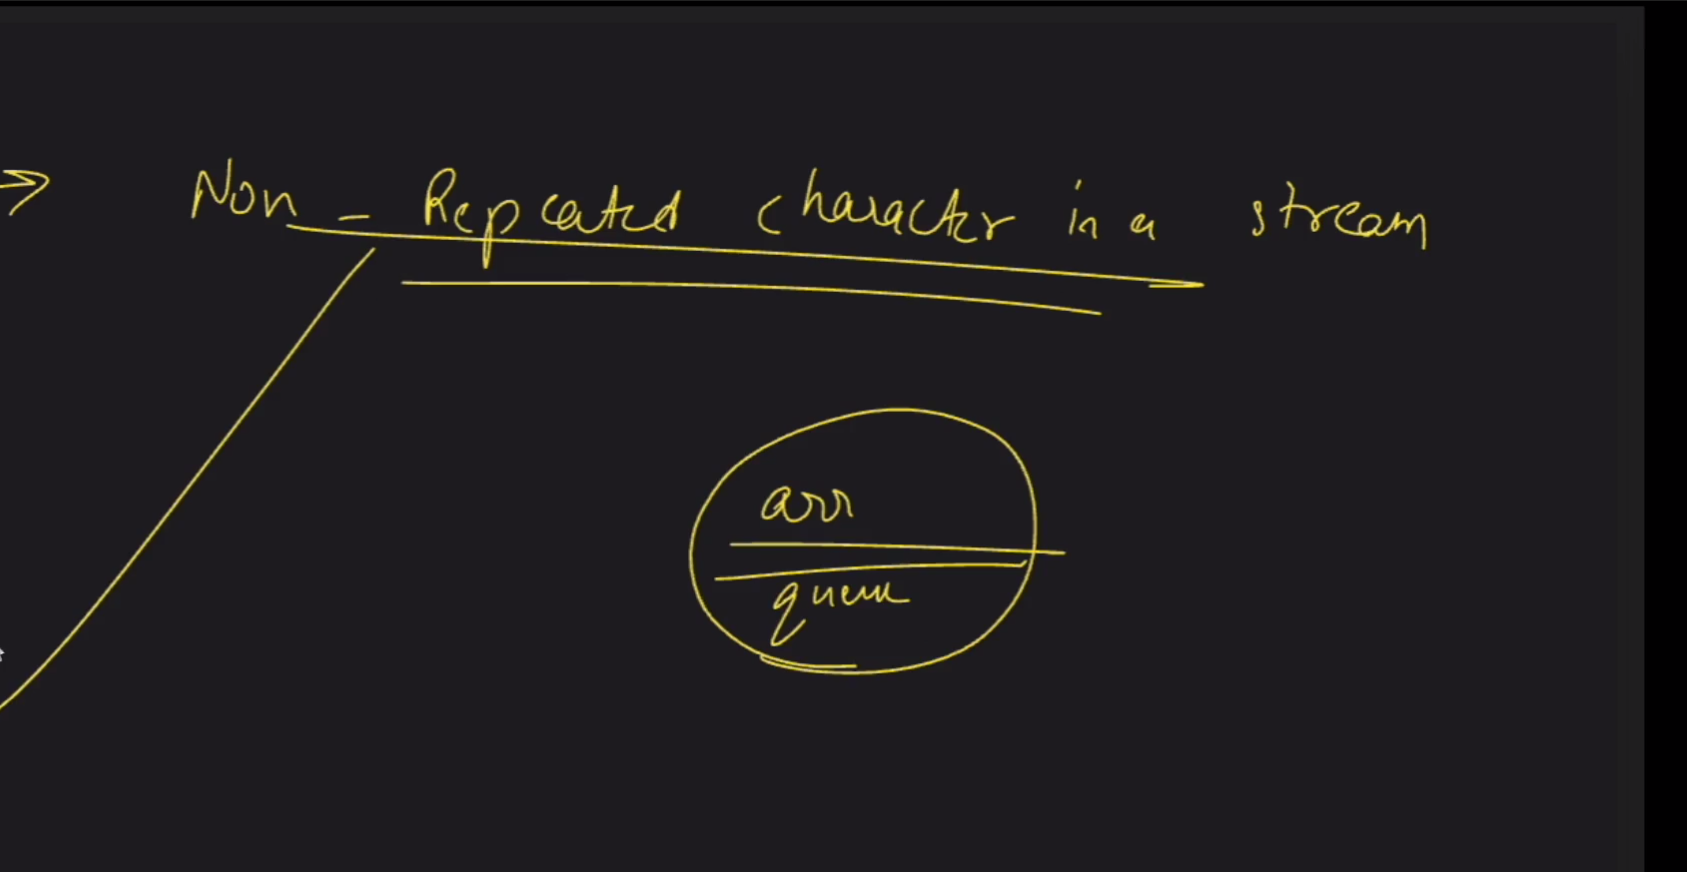 Non - Repeated character in a stream
arr
queue